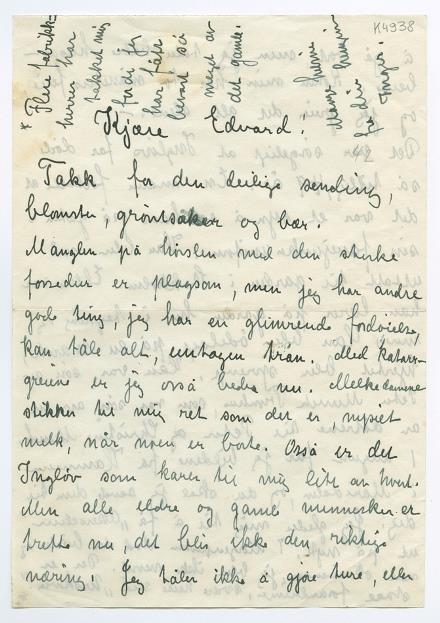 K4938
* Flere fabrikk-
herrer har
takket mig
fordi jeg
har latt
bevart så
meget av
det gamle.
Mange
hilsen
fra din
Inger.
42
Kjære Edvard!
Takk for den deilige sending,
blomster, grøntsaker og bær.
Manglen på hørslen med den sterke
forsedur er plagsom, men jeg har andre
gode ting, jeg har en glimrende fordøielse,
kan tåle alt, undtagen tran. Med Katarr-
greiene er jeg osså bedre nu. Melkedamene
stikker til mig ret som det er, nysiet
melk, når noen er borte. Osså er det
Ingløv som karer til mig litt av hvert.
Men alle eldre og gamle mennesker er
trette nu, det blir ikke den riktige
næring. Jeg tåler ikke å gjøre ture, eller